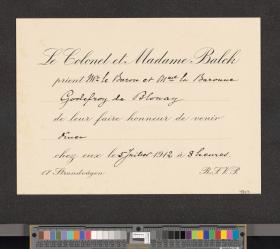 Le Colonel et Madame Balck
prient Mr le Baron et Mme la Baronne
Godefroy de Blonay
de leur faire honneur de venir
diner
chez eux le 5 Juillet 1912 à 8 heures.
17 Strandvägen R.S.V.P.